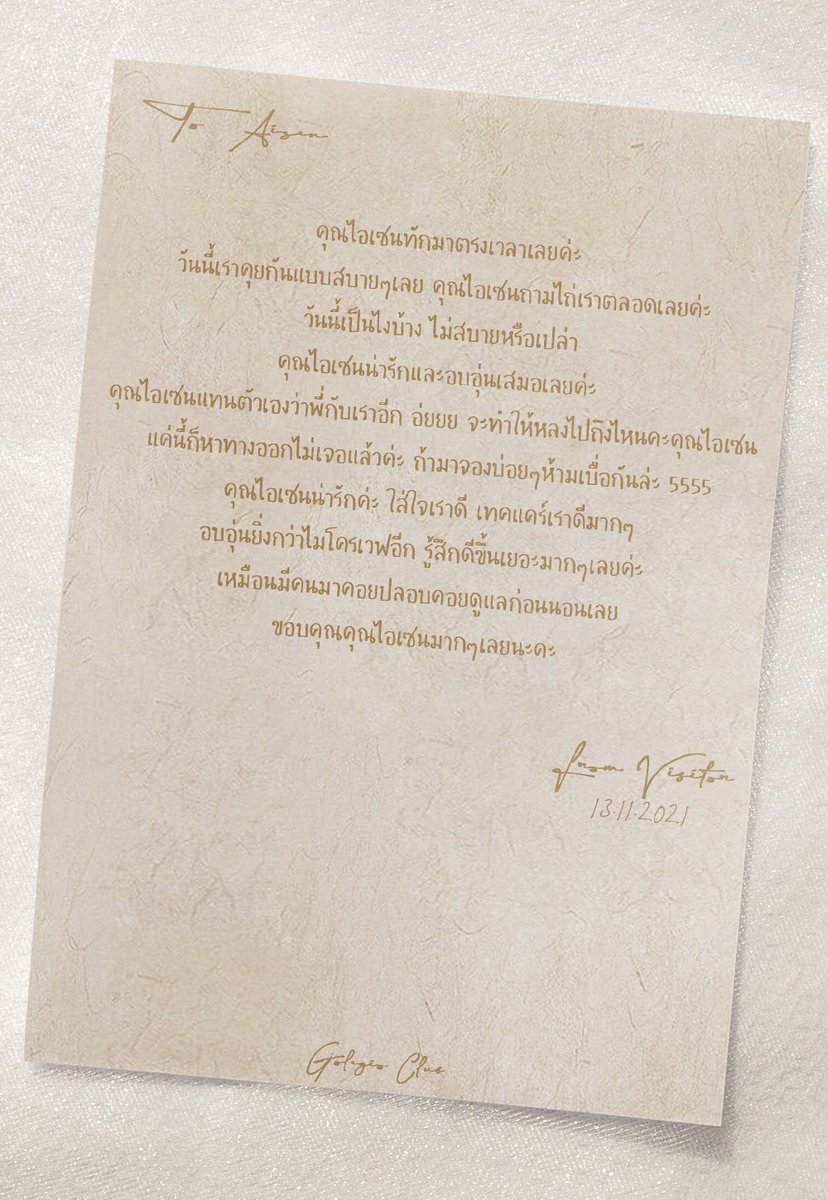 To Aizen
คุณไอเซนทักมาตรงเวลาเลยค่ะ
วันนี้เราคุยกันแบบสบายๆเลย คุณไอเซนถามไถ่เราตลอดเลยค่ะ
วันนี้เป็นไงบ้าง ไม่สบายหรือเปล่า
คุณไอเซนน่ารักและอบอุ่นเสมอเลยค่ะ
คุณไอเซนแทนตัวเองว่าพี่กับเราอีก อ่ยยย จะทำให้หลงไปถึงไหนคะคุณไอเซน
แค่นี้ก็หาทางออกไม่เจอแล้วค่ะ ถ้ามาจองบ่อยๆห้ามเบื่อกันล่ะ 5555
คุณไอเซนน่ารักค่ะ ใส่ใจเราดี เทคแคร์เราดีมากๆ
อบอุ่นยิ่งกว่าไมโครเวฟอีก รู้สึกดีขึ้นเยอะมากๆเลยค่ะ
เหมือนมีคนมาคอยปลอบคอยดูแลก่อนนอนเลย
ขอบคุณคุณไอเซนมากๆเลยนะคะ
from Visitor
13.11.2021
Club